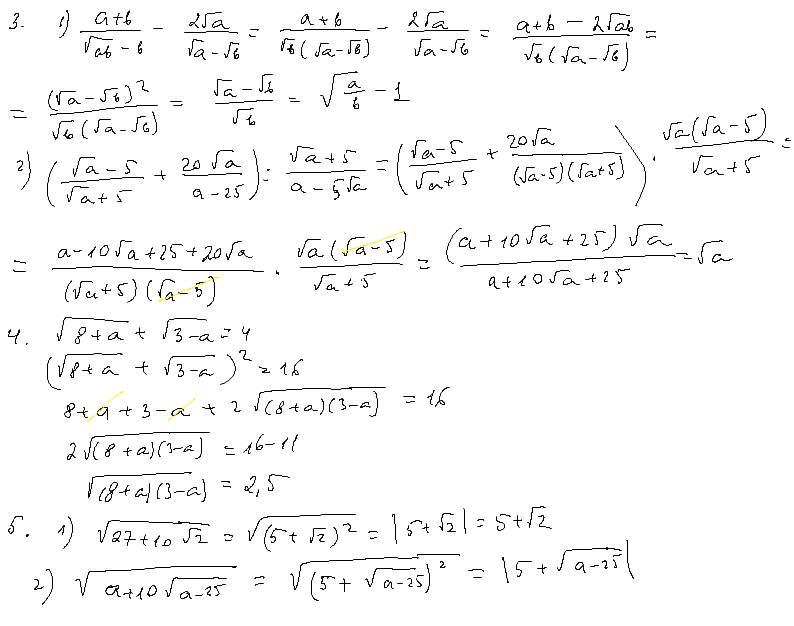 3. 1) (a+b)/(√ab - b) - 2√a/(√a-√b) = (a+b)/(√b(√a-√b)) - 2√a/(√a-√b) = (a+b-2√ab)/(√b(√a-√b)) =
= (√a-√b)²/(√b(√a-√b)) = (√a-√b)/√b = √(a/b) - 1
2) ((√a-5)/(√a+5) + 20√a/(a-25)) : (√a+5)/(a-5√a) = ((√a-5)/(√a+5) + 20√a/((√a-5)(√a+5))) · √a(√a-5)/(√a+5) =
= (a-10√a+25+20√a)/((√a+5)(√a-5)) · √a(√a-5)/(√a+5) = (a+10√a+25)√a/(a+10√a+25) = √a
4. √(8+a) + √(3-a) = 4
(√(8+a) + √(3-a))² = 16
8+a+3-a + 2√((8+a)(3-a)) = 16
2√((8+a)(3-a)) = 16-11
√((8+a)(3-a)) = 2,5
5. 1) √(27+10√2) = √((5+√2)²) = |5+√2| = 5+√2
2) √(a+10√(a-25)) = √((5+√(a-25))²) = |5+√(a-25)|